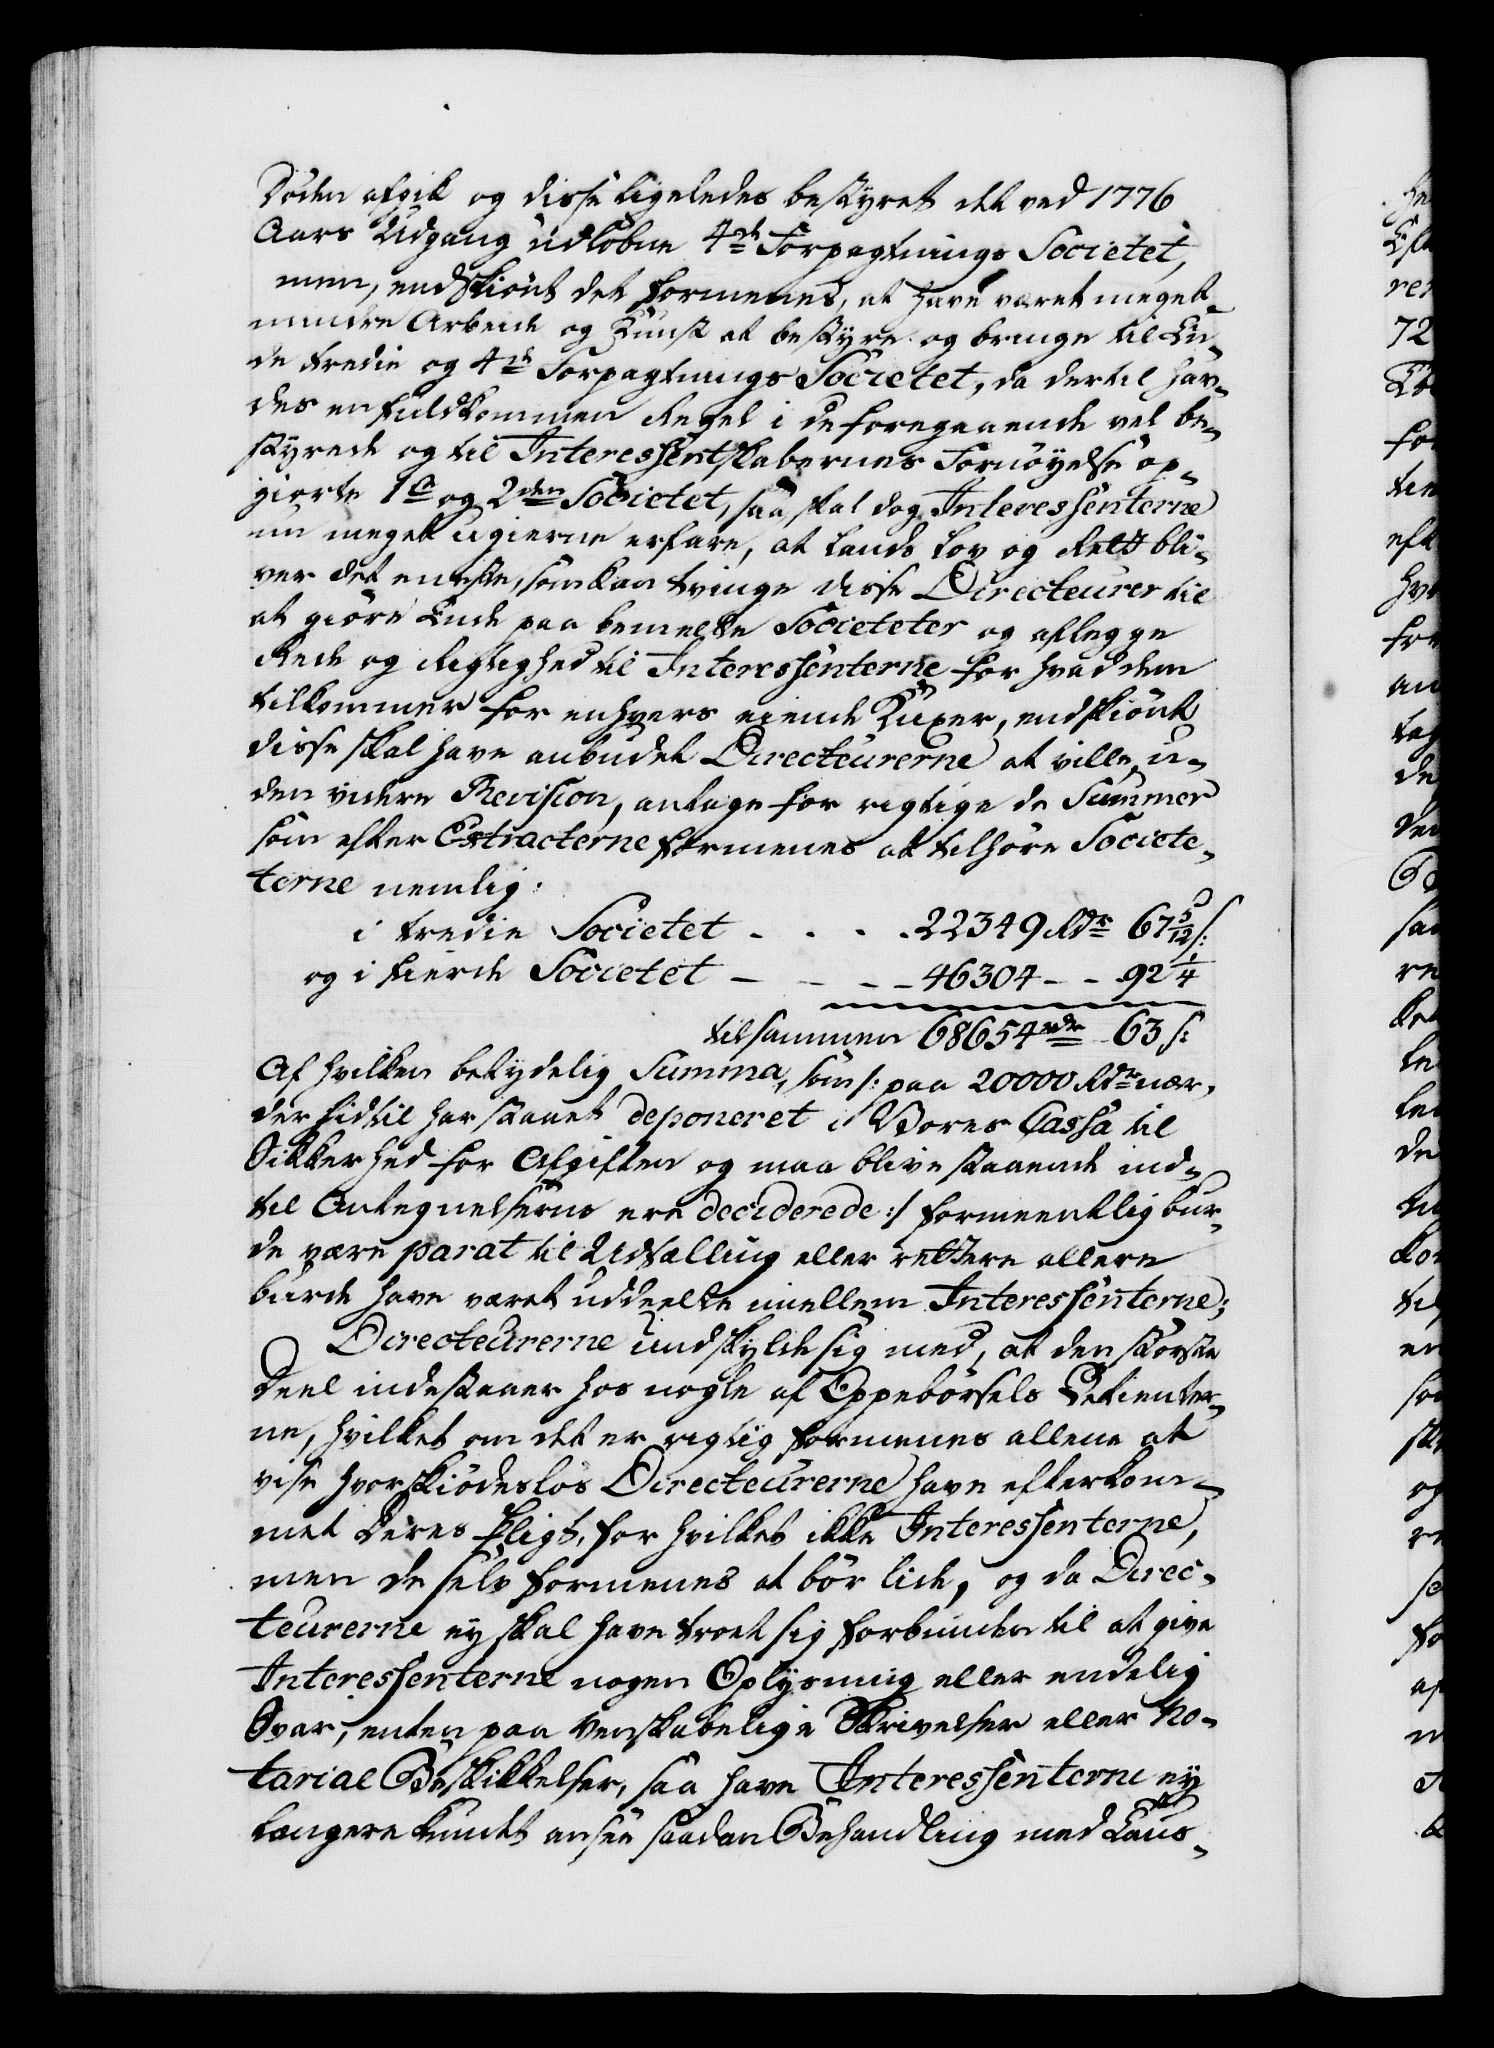 Døden afgik og disse ligeledes bestyret det ved 1776
Aars Udgang udløbne 4de Forpagtnings Societet,
men, endskiønt det formenes, at have været meget
mindre Arbeide og Kunst at bestyre og bringe til En-
de tredie og 4de Forpagtnings Societet, da dertil hav-
des en fuldkommen Regel i de foregaaende vel be-
styrede og til Interessentskabernes Fornøyelse op-
giorte 1te og 2den Societet, saa skal dog Interessenterne
nu meget ugierne erfare, at Lands Lov og Rett bli-
ver det eneste, som kan tvinge disse Directeurer til
at giøre Ende paa bemelte Societeter og aflegge
Rede og Rigtighed til Interessenterne for hvad dem
tilkommer for enhvers eiende Kuxer, endskiønt
disse skal have anbudet Directeurerne at ville u-
den videre Revision, antage for rigtige de Summer
som efter Extracterne formenes at tilhøre Societe-
terne nemlig:
i tredie Societet - - - - 22349 Rdr 67 5/12 s:
og i fierde Societet - - - - 46304 - - 92 1/4
tilsammen 68654 rdr 63 s:
Af hvilken betydelig Summa, som /: paa 20000 Rdr nær,
der hidtil har staaet deponeret i Vores Cassa til
Sikkerhed for Afgiften og maa blive staaende ind-
til Antegnelserne ere deciderede :/ formeentlig bur-
de være parat til Udtælling eller rettere allere
burde have været uddeelte imellem Interessenterne;
Directeurerne undskylde sig med, at den største
Deel indestaaer hos nogle af Oppebørsels Betienter-
ne, hvilket om det er rigtig formenes allene at
vise hvor skiødesløs Directeurerne have efterkom-
met Deres Pligt, for hvilket ikke Interessenterne,
men de selv formenes at bør lide, og da Direc-
teurerne ey skal have troet sig forbunden til at give
Interessenterne nogen Oplysning eller endelig
Svar, enten paa venskabelige Skrivelser eller No-
tarial Beskikkelser, saa have Interessenterne ey
længere kundet ansee saadan Behandling med Lands-